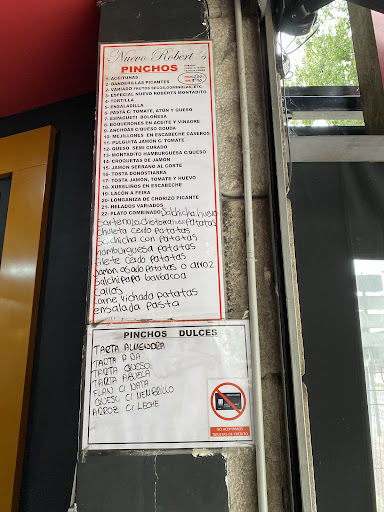 Nuevo Robert´s
PINCHOS
1- ACEITUNAS
2- BANDERILLAS PICANTES
3- VARIADO FRUTOS SECOS, GOMINOLAS, ETC
3- ESPECIAL NUEVO ROBERTS MONTADITO
4- TORTILLA
5- ENSALADILLA
6- PASTA C/ TOMATE, ATÚN Y QUESO
7- ESPAGUETI BOLOÑESA
8- BOQUERONES EN ACEITE Y VINAGRE
9- ANCHOAS C/QUESO GOUDA
10- MEJILLONES EN ESCABECHE CASEROS
11- PULGUITA JAMÓN C/ TOMATE
12- QUESO SEMI CURADO
13- MONTADITO HAMBURGUESA C/QUESO
14- CROQUETAS DE JAMÓN
15- JAMÓN SERRANO AL CORTE
16- TOSTA DONOSTIARRA
17- TOSTA JAMÓN, TOMATE Y HUEVO
18- XURELIÑOS EN ESCABECHE
19- LACÓN A FEIRA
20- LONGANIZA DE CHORIZO PICANTE
21- HELADOS VARIADOS
22- PLATO COMBINADO Salchicha huevo
patatas
chuleta cerdo patatas
con patatas
hamburguesa patatas
filete cerdo patatas
Jamon asado patatas o arroz
Salchipapa barbacoa
callos
carne richada patatas
ensalada pasta
PINCHOS DULCES
TARTA ALMENDRA
TARTA
TARTA QUESO
TARTA ABUELA
FLAN C/ NATA
QUESO C/ MEMBRILLO
ARROZ C/ LECHE
NO ACEPTAMOS
TARJETAS DE CRÉDITO